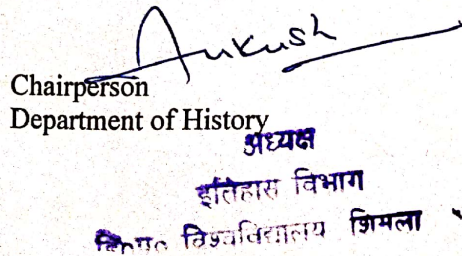 Ankush
Chairperson
Department of History
अध्यक्ष
इतिहास विभाग
विश्वविद्यालय शिमला